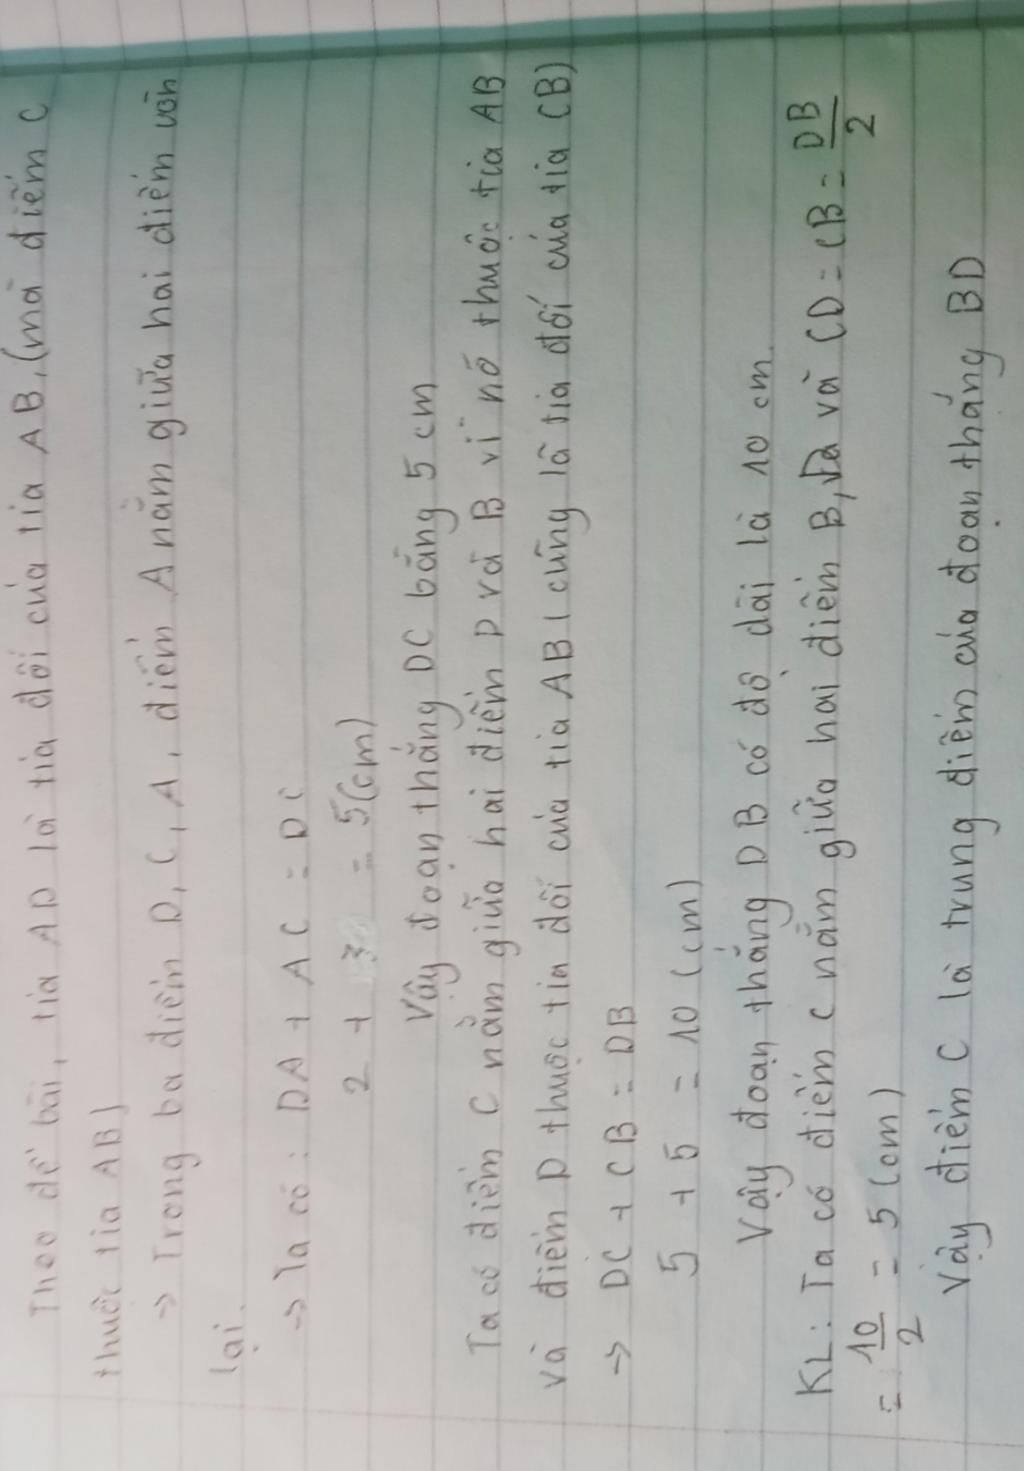 Theo đề bài, tia AD là tia đối của tia AB, (mà điểm C
thuộc tia AB)
→ Trong ba điểm D, C, A, điểm A nằm giữa hai điểm còn
lại.
→ Ta có: DA + AC = DC
2 + 3 = 5(cm)
Vậy đoạn thẳng DC bằng 5 cm
Ta có điểm C nằm giữa hai điểm D và B vì nó thuộc tia AB
và điểm D thuộc tia đối của tia AB (cũng là tia đối của tia CB)
→ DC + CB = DB
5 + 5 = 10 (cm)
Vậy đoạn thẳng DB có độ dài là 10 cm.
KL: Ta có điểm C nằm giữa hai điểm B, D và CD = CB = DB/2
= 10/2 = 5 (cm)
Vậy điểm C là trung điểm của đoạn thẳng BD